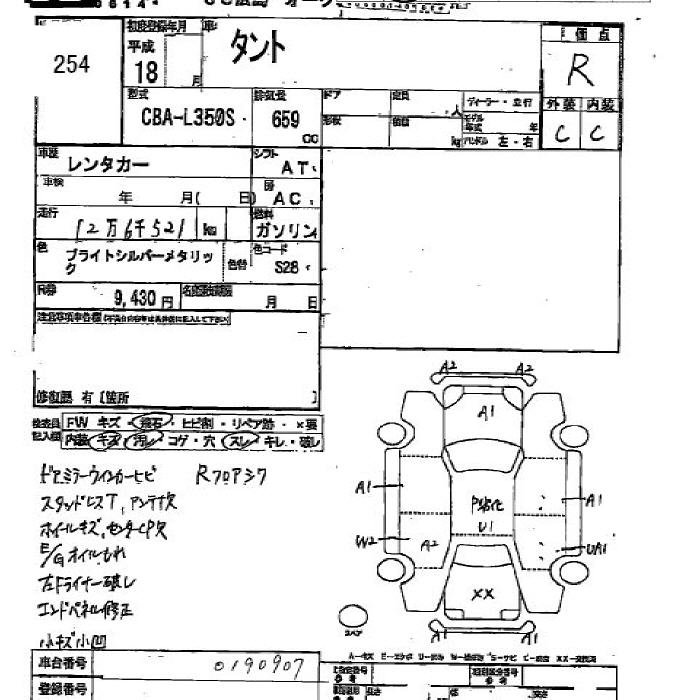 初度登録年月 車名 タント
254
平成
18 月
評価点
R
型式
CBA-L350S
排気量
659
CC
ドア
定員
人
ディーラー・並行
モデル年式
年
形状
積載
kg
ハンドル 左・右
外装 内装
C C
車歴
レンタカー
シフト
AT
車検
年 月( 日)
AC
走行
12万6千521 km
燃料
ガソリン
色
ブライトシルバーメタリック
色替
色コード
S28
R券
9,430円
名変期限
月 日
修復歴 有 [箇所 ]
検査員記入欄
FW キズ・飛石・ヒビ割・リペア跡・×要
内装 キズ・汚れ・コゲ・穴・スレ・キレ・破レ
ドアミラーウインカーヒビ Rフロアシワ
スタッドレスT, アンテナ欠
ホイールキズ, センターCP欠
E/Gオイルもれ
左Fライナー破レ
エンドパネル修正
小キズ小凹
A2 A2
A1
A1
P劣化
A1
U1
W2
A2
UA1
XX
スペア
A1 A1
車台番号
0190907
登録番号